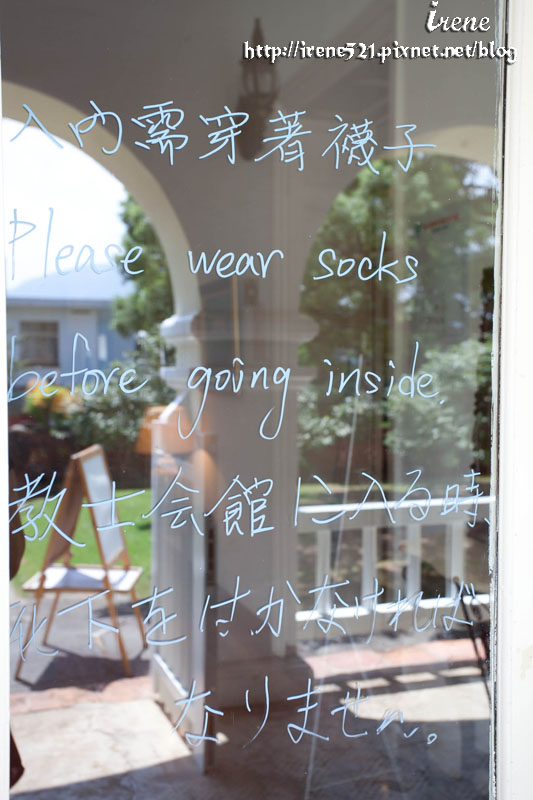 irene
http://irene521.pixnet.net/blog
入內需穿著襪子
Please wear socks
before going inside.
教士会館に入る時、
靴下を付かなければ
なりません。